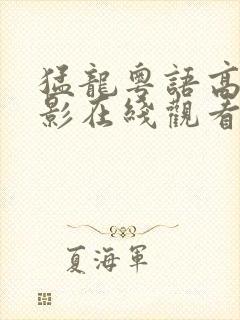 猛龍粵語高
影在綫觀看
夏海軍